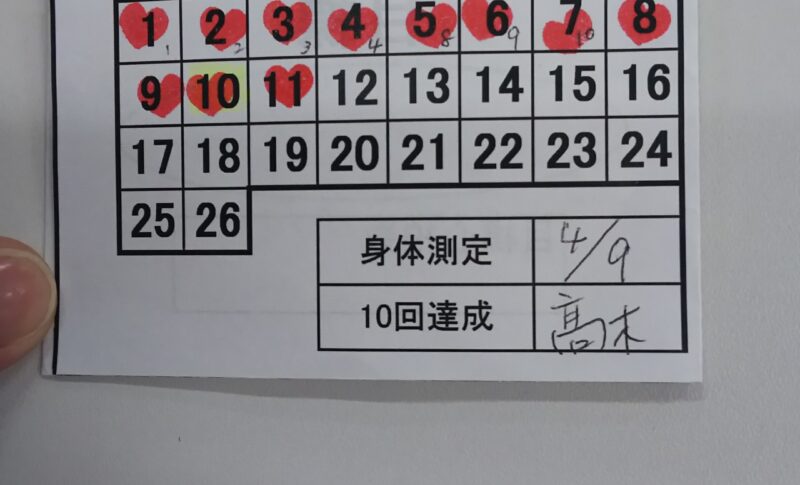 1 2 3 4 5 6 7 8
1 2 3 4 8 9 10
9 10 11 12 13 14 15 16
17 18 19 20 21 22 23 24
25 26
身体測定 4/9
10回達成 髙木